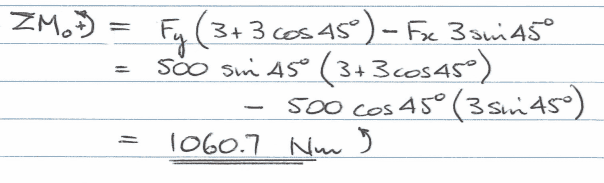 ΣM₀↺ = Fy (3+3 cos 45°) − Fx 3 sin 45°
= 500 sin 45° (3+3cos45°)
− 500 cos 45° (3 sin 45°)
= 1060.7 Nm ↺